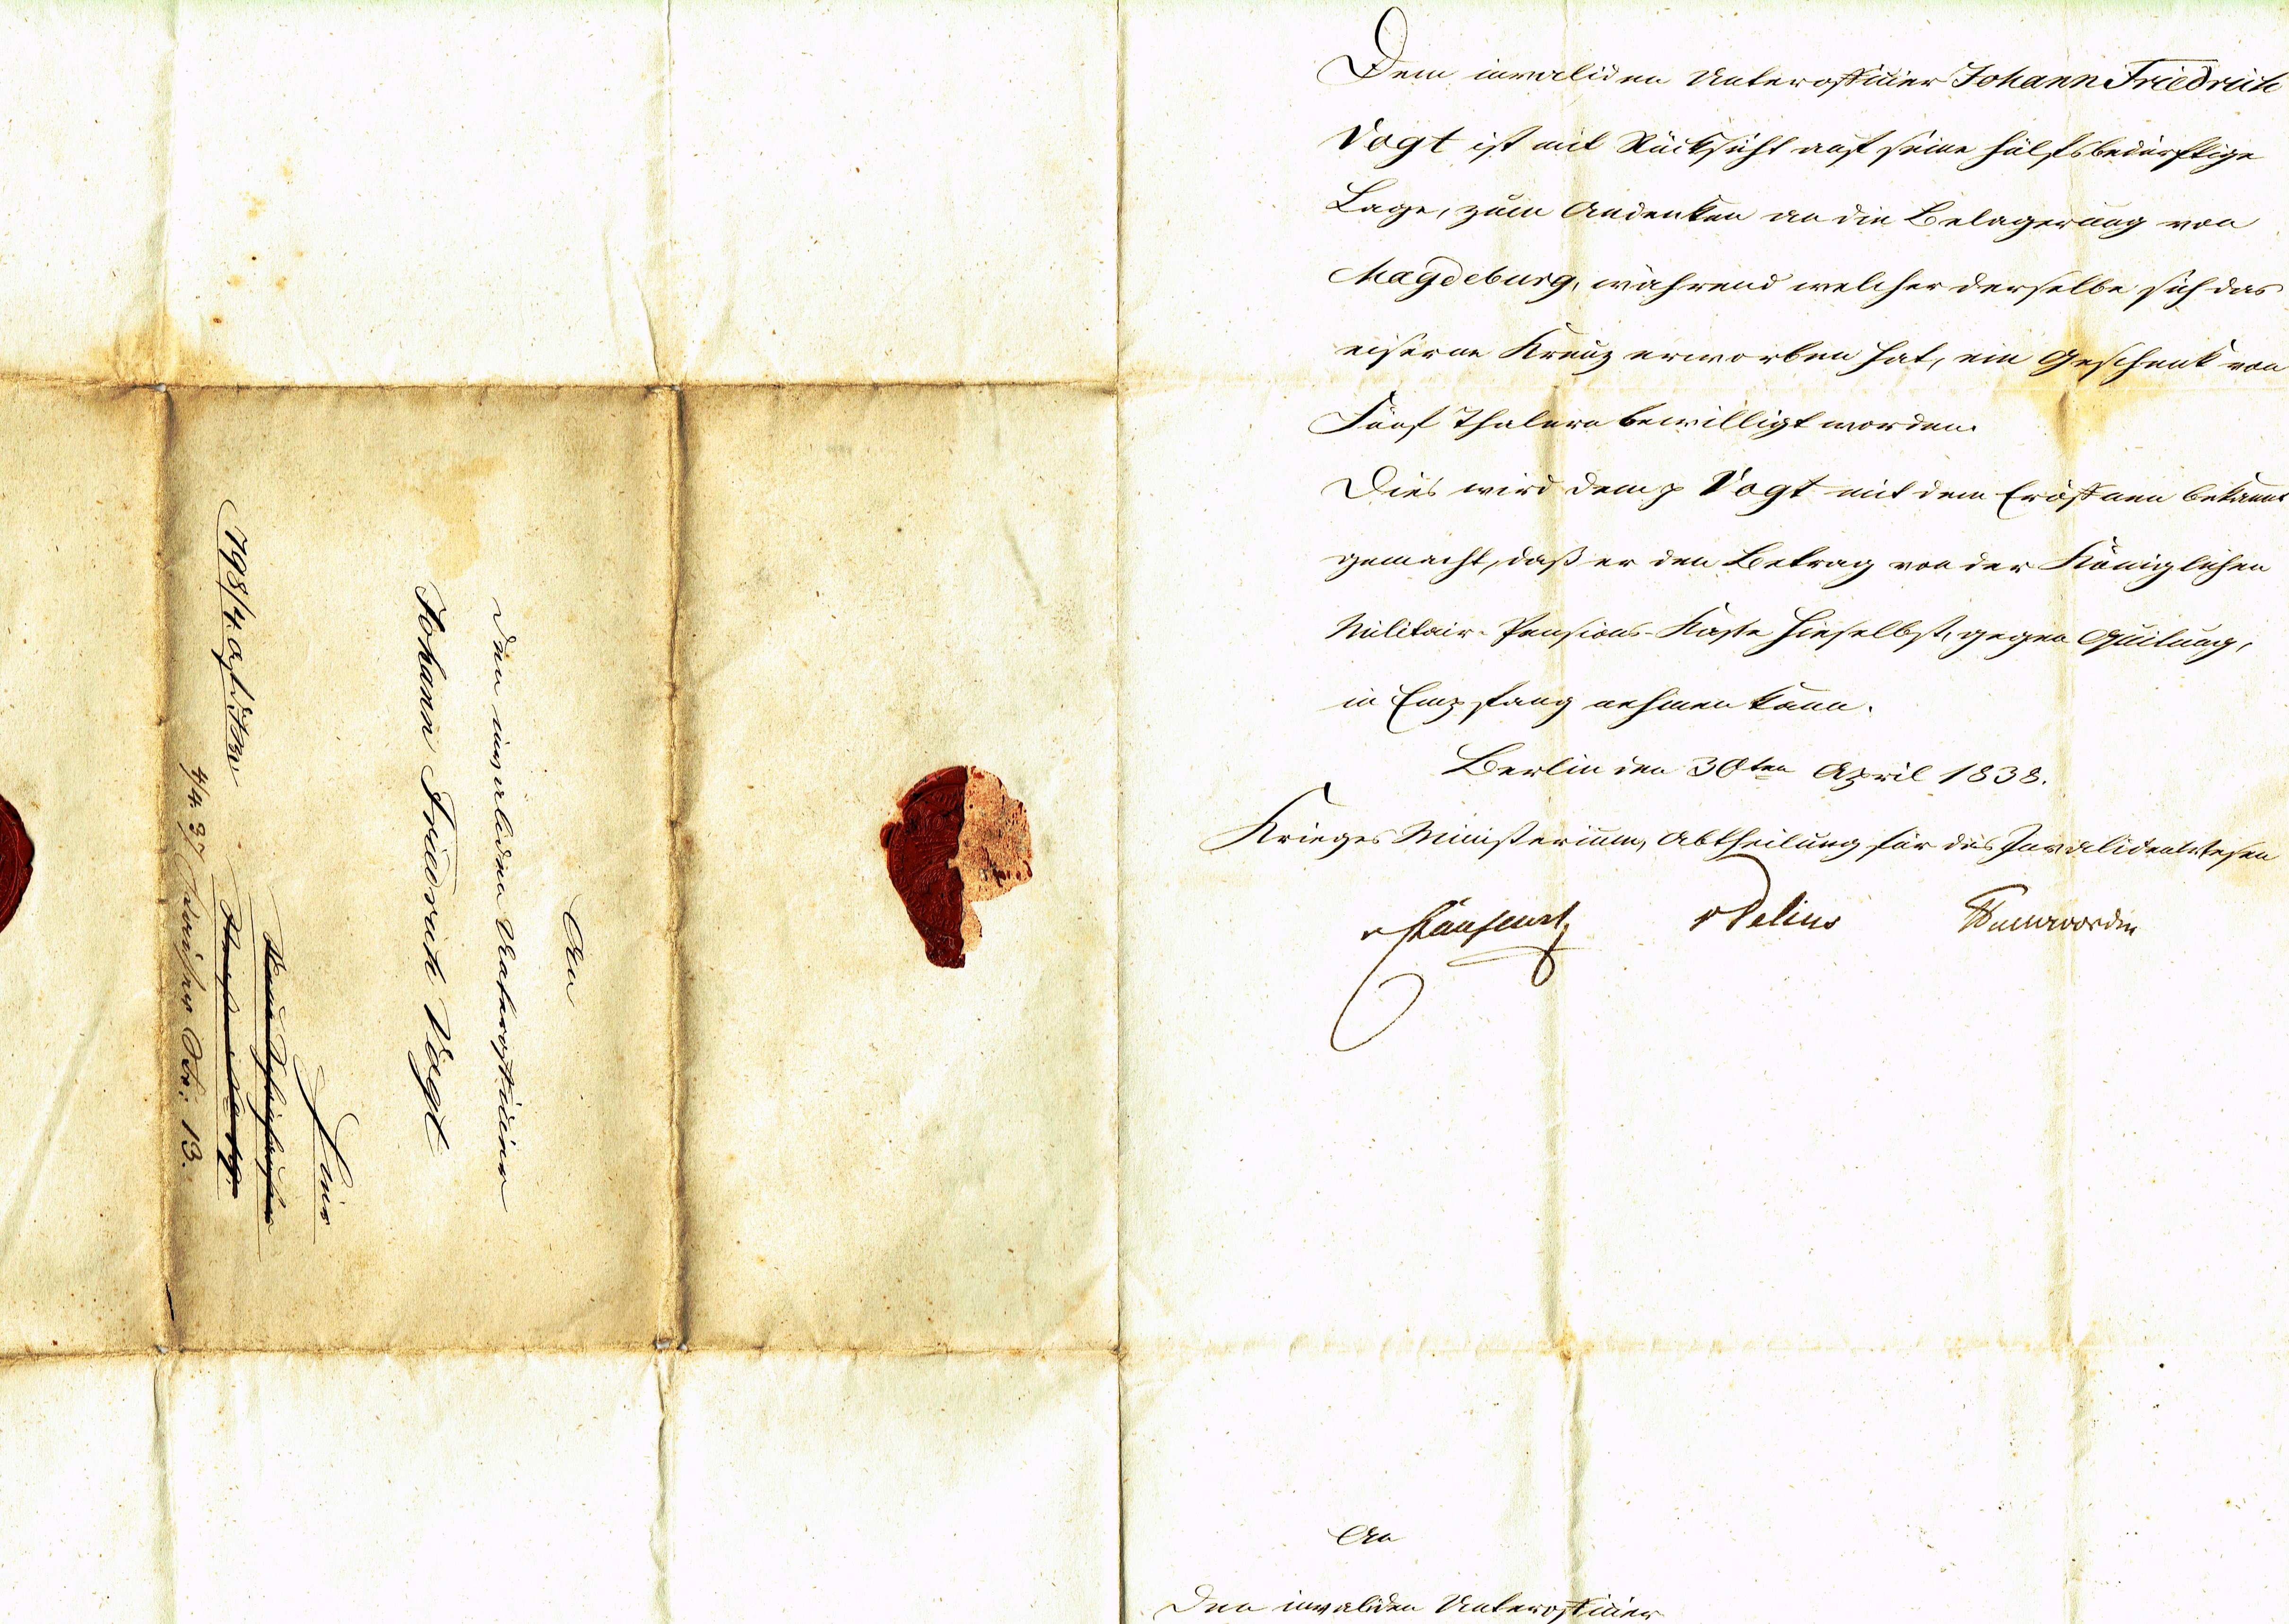 Dem invaliden Unteroffizier Johann Friedrich
Vogt ist mit Rücksicht auf seine hülfsbedürftige
Lage, zum Andenken an die Belagerung von
Magdeburg, während welcher derselbe sich das
eiserne Kreuz erworben hat, ein Geschenk von
Fünf Thalern bewilligt worden.
Dies wird dem p Vogt mit dem Eröffnen bekannt
gemacht, daß er den Betrag von der Königlichen
Militair-Pensions-Kasse hieselbst, gegen Quitung,
in Empfang nehmen kann.
Berlin den 30ten April 1838.
Krieges Ministerium, Abtheilung für das Invalidenwesen
v Delius
An
Den invaliden Unteroffizier
An
den invaliden Unteroffizier
Johann Friedrich Vogt
hier
798/4.
13.